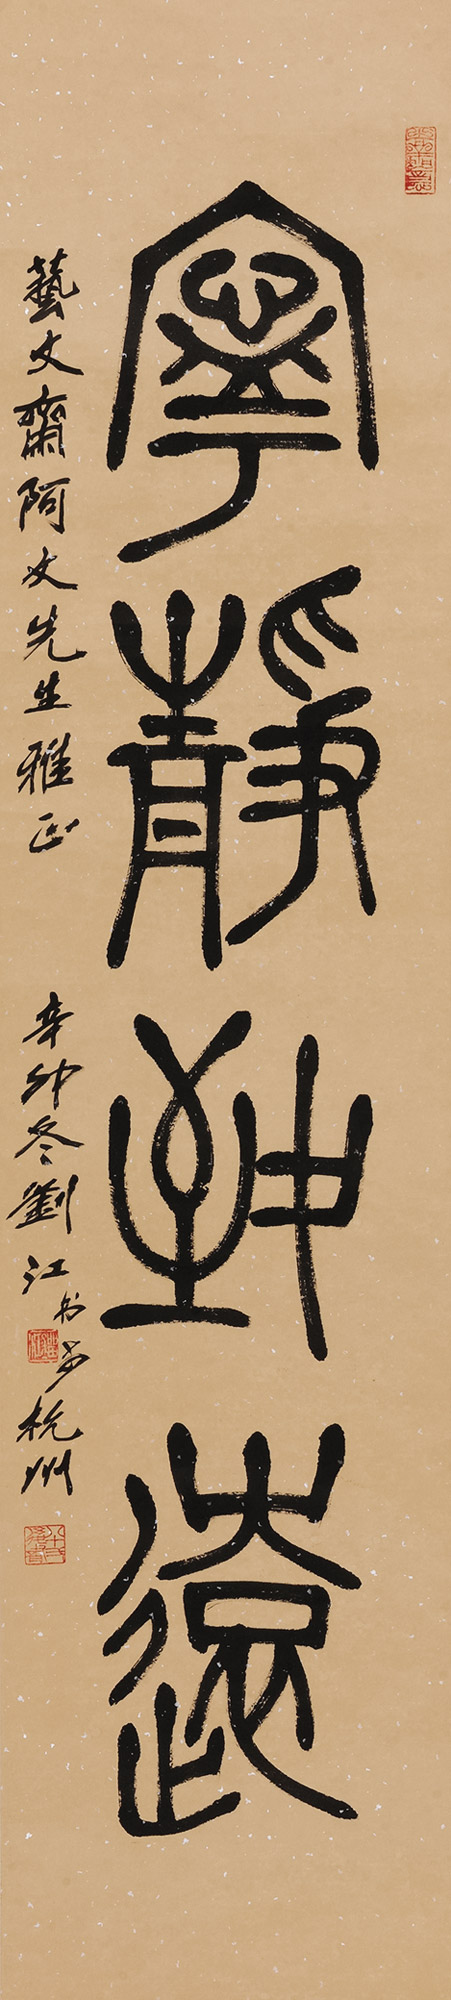 寧靜致遠
藝文齋阿文先生雅正 辛卯冬劉江书于杭州